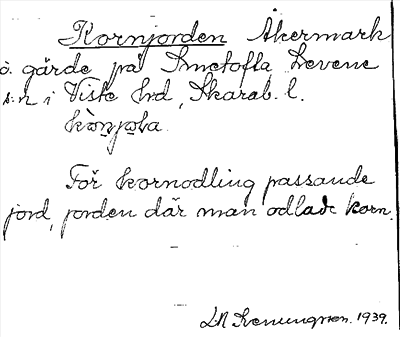 Kornjorden Åkermark
ö. gärde på Smetofta Levene
s:n i Viste hrd, Skarab. l.
För kornodling passande
jord, jorden där man odlade korn.
1939.